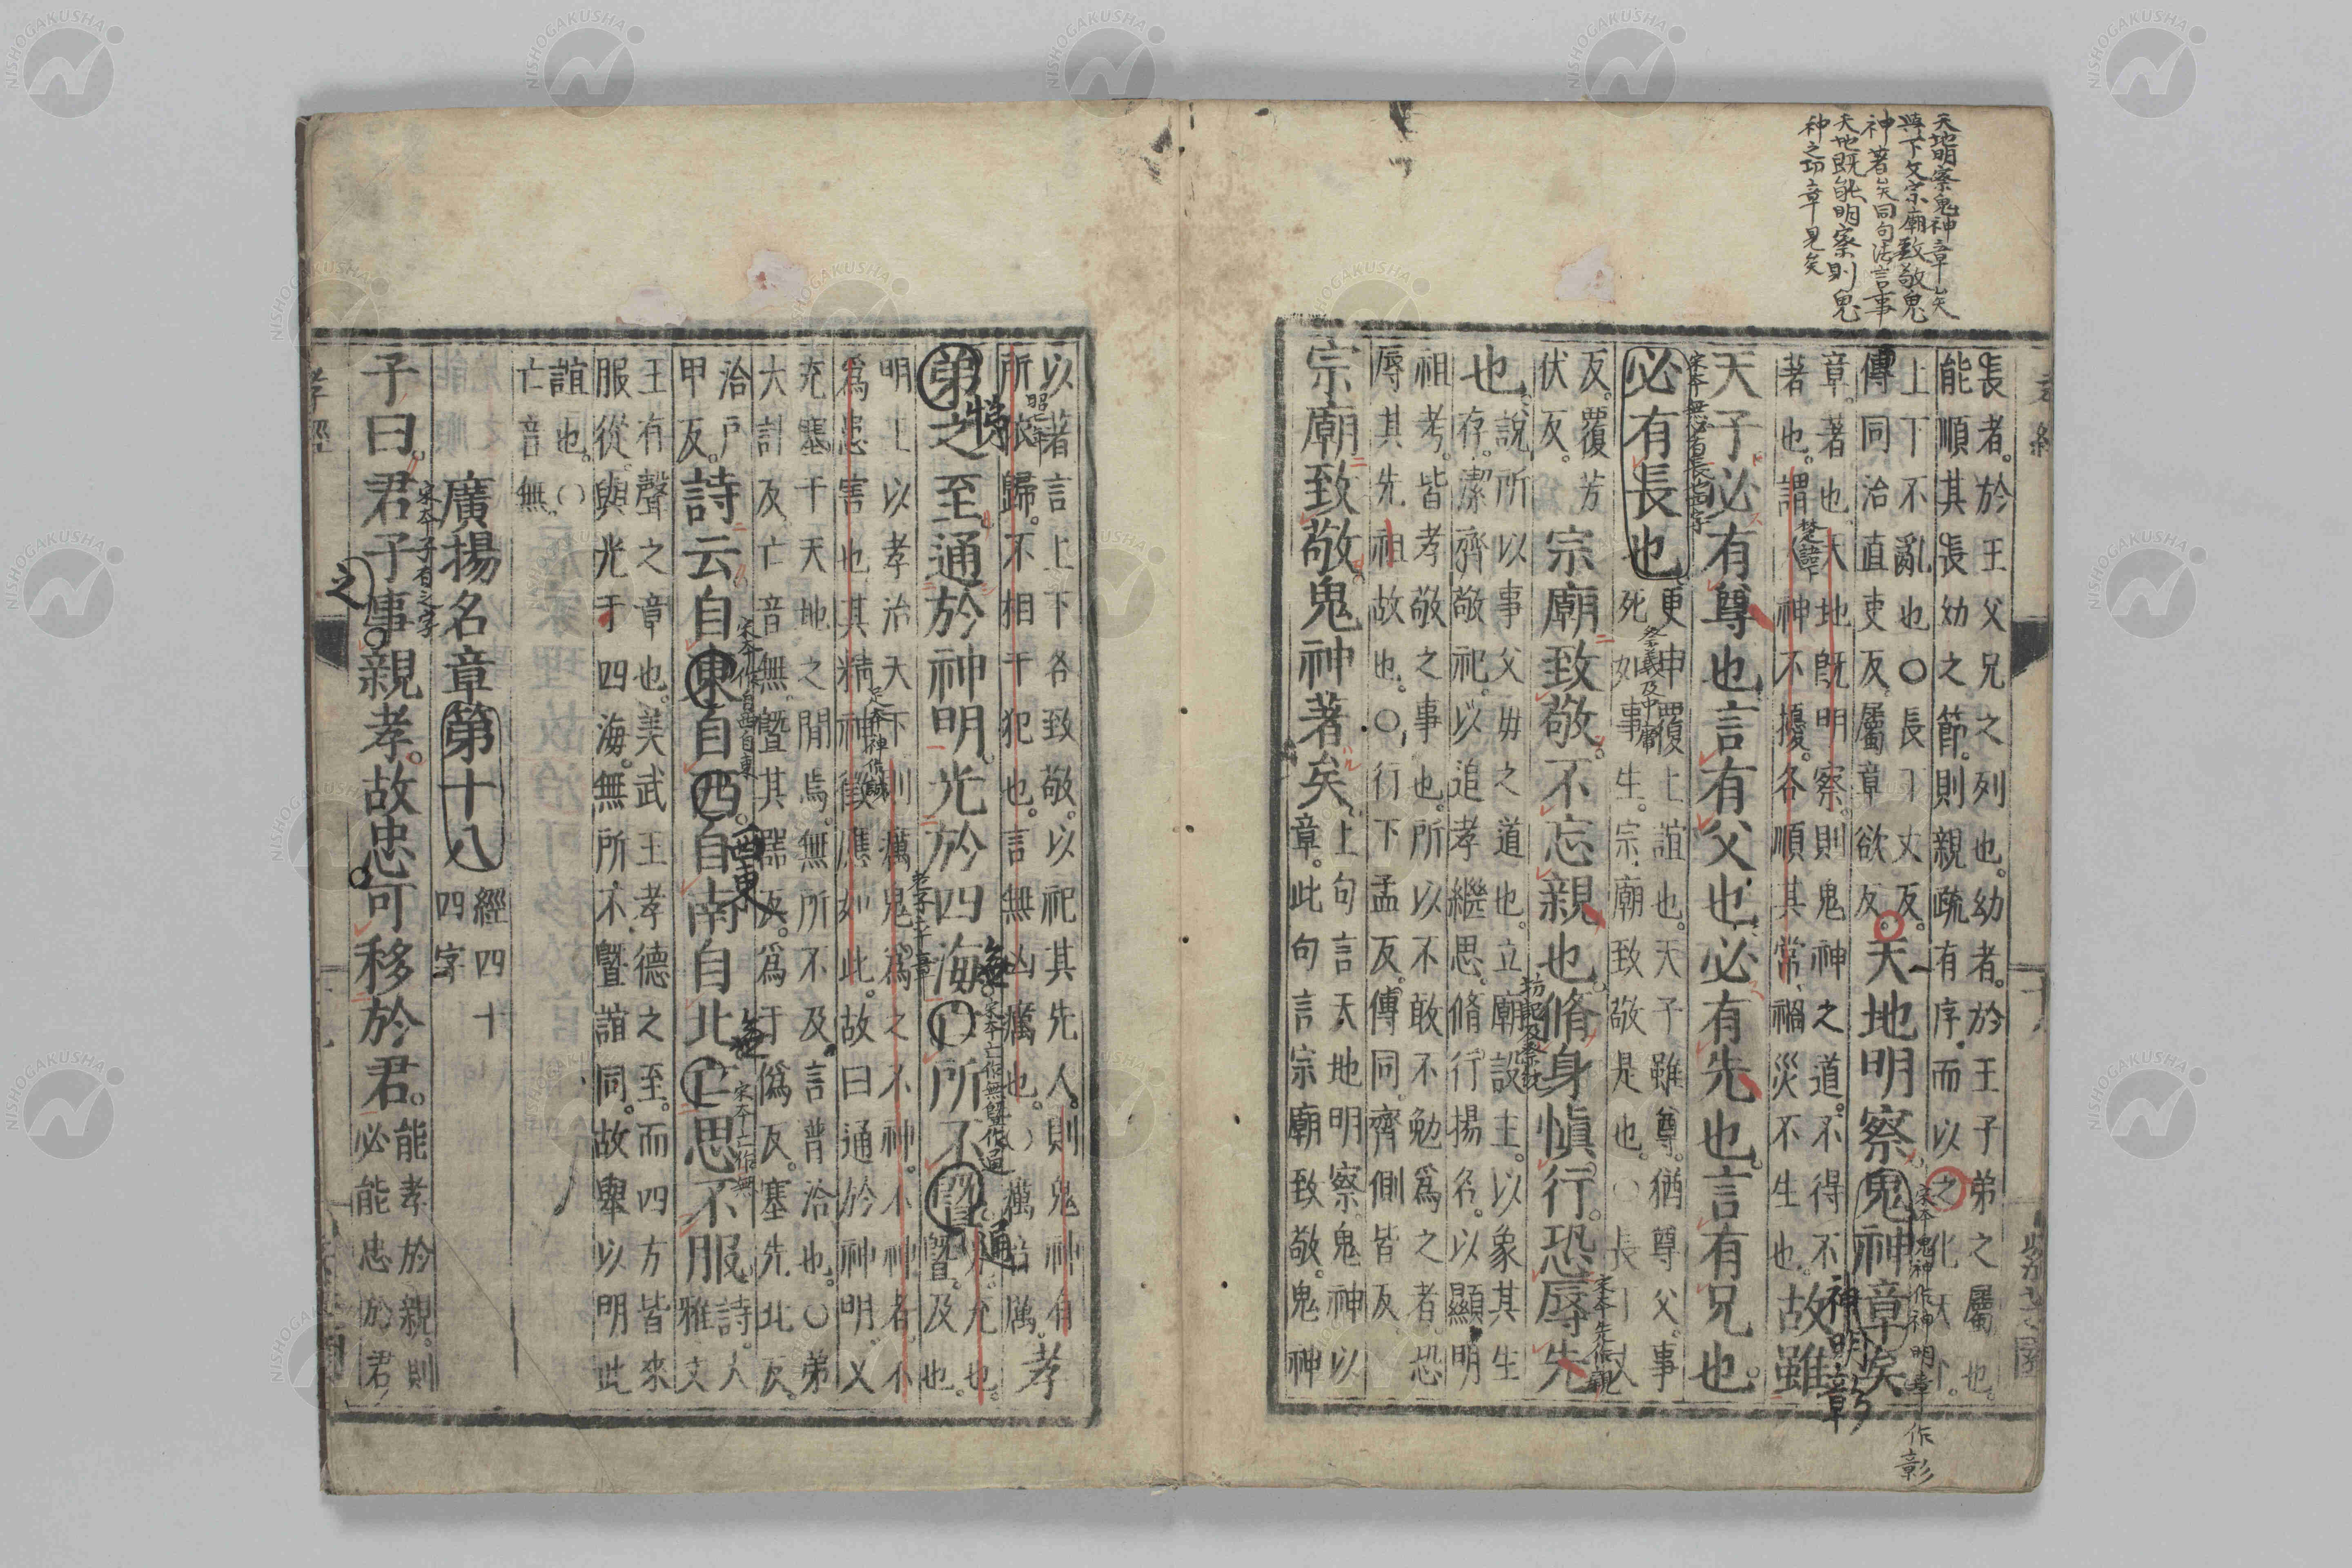 天地明察鬼神章矣
與下文宗廟致敬鬼
神著矣同句法言事
天地既能明察則鬼
神之功章見矣
長者於王父兄之列也幼者於王子弟之屬也
能順其長幼之節則親疏有序而以之化天下
上下不亂也○長丁丈反
傳同治直吏反屬章欲反
天地明察鬼神章矣
宋本鬼神作神明章作彰
神明彰
章著也天地既明察則鬼神之道不得不
者也謂人神不擾各順其常禍災不生也
故雖
天子必有尊也言有父也必有先也言有兄也
宋本無必有長也四字
必有長也
更申覆上誼也天子雖尊猶尊父事
死如事生宗廟致敬是也○長丁丈
祭義及中庸
反覆芳
伏反
宗廟致敬不忘親也脩身愼行恐辱先
坊記及祭統
宋本先作親
也
說所以事父毋之道也立廟設主以象其生
存潔齊敬祀以追孝繼思脩行揚名以顯明
祖考皆孝敬之事也所以不敢不勉爲之者恐
辱其先祖故也○行下孟反傳同齊側皆反
宗廟致敬鬼神著矣
上句言天地明察鬼神以
章此句言宗廟致敬鬼神
以著言上下各致敬以祀其先人則鬼神有
所依歸不相干犯也言無凶厲也○厲若厲
孝
弟之至通於神明光於四海亡所不曁
悌
海
通
宋本亡作無曁作通
光充也
曁及也
明王以孝治天下則厲鬼爲之不神不神者不
爲患害也其精神徵應如此故曰通於神明乂
老子六十章
充塞于天地之閒焉無所不及言普洽也○弟
大計反亡音無曁其器反爲于僞反塞先北反
洽戶
甲反
詩云自東自西自南自北亡思不服
宋本作自西自東
西東
無
宋本亡作無
詩大
雅文
王有聲之章也美武王孝德之至而四方皆來
服從與光于四海無所不曁誼同故舉以明此
誼也○
亡音無
廣揚名章第十八
經四十
四字
宋本子有之字
子曰君子事親孝故忠可移於君
能孝於親則
必能忠於君
之
孝經